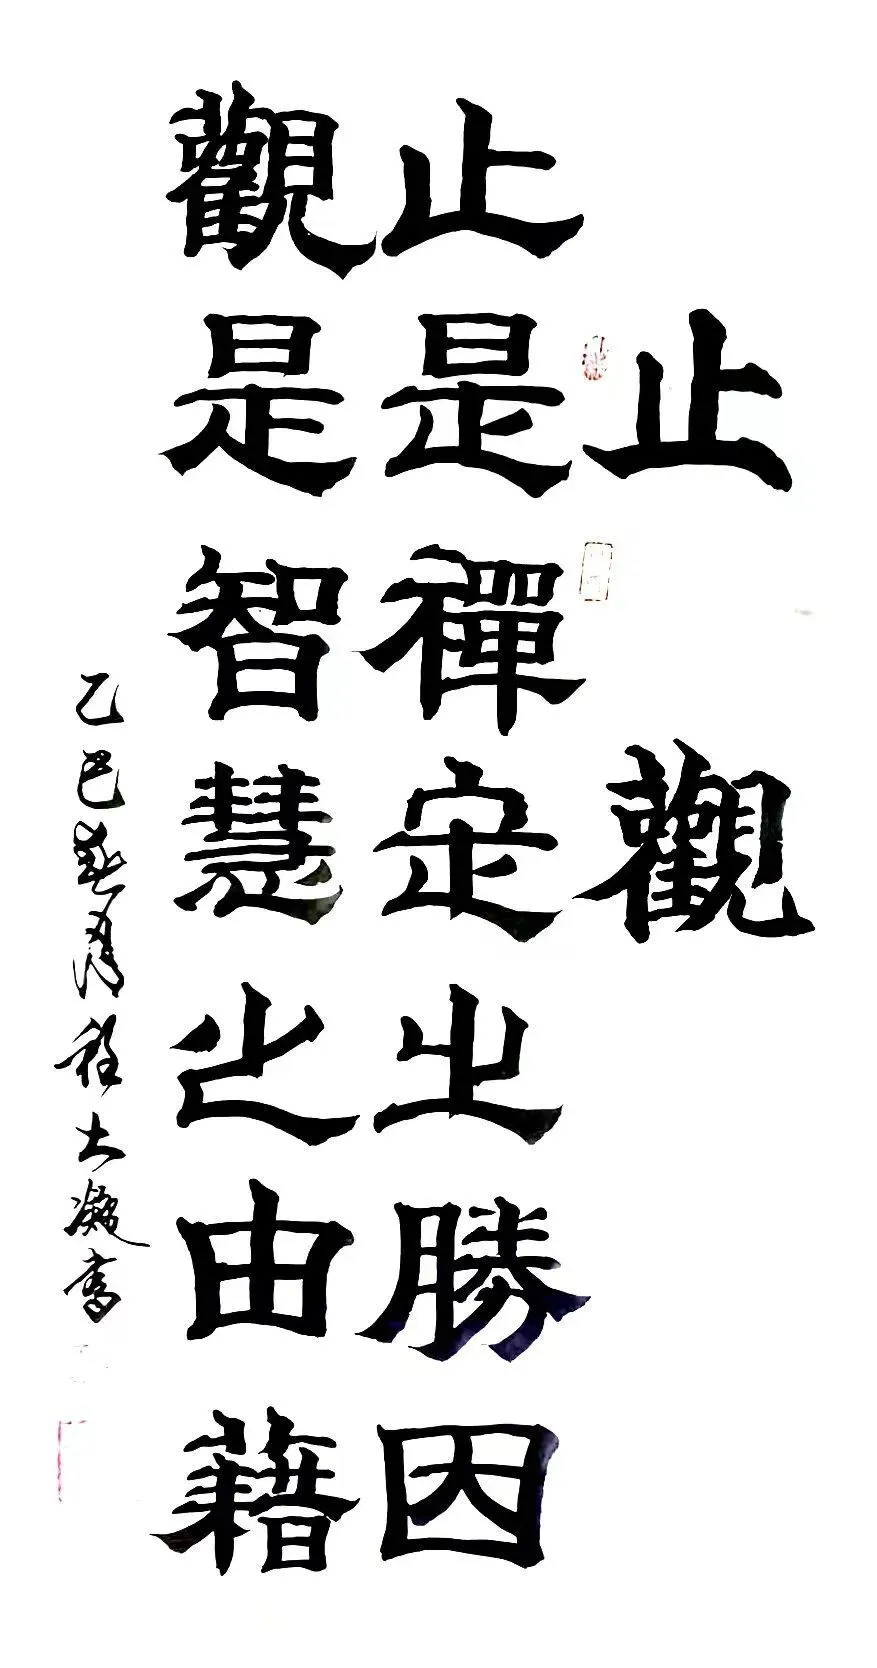 止觀
止是禪定之勝因
觀是智慧之由藉
乙巳 程大凝書